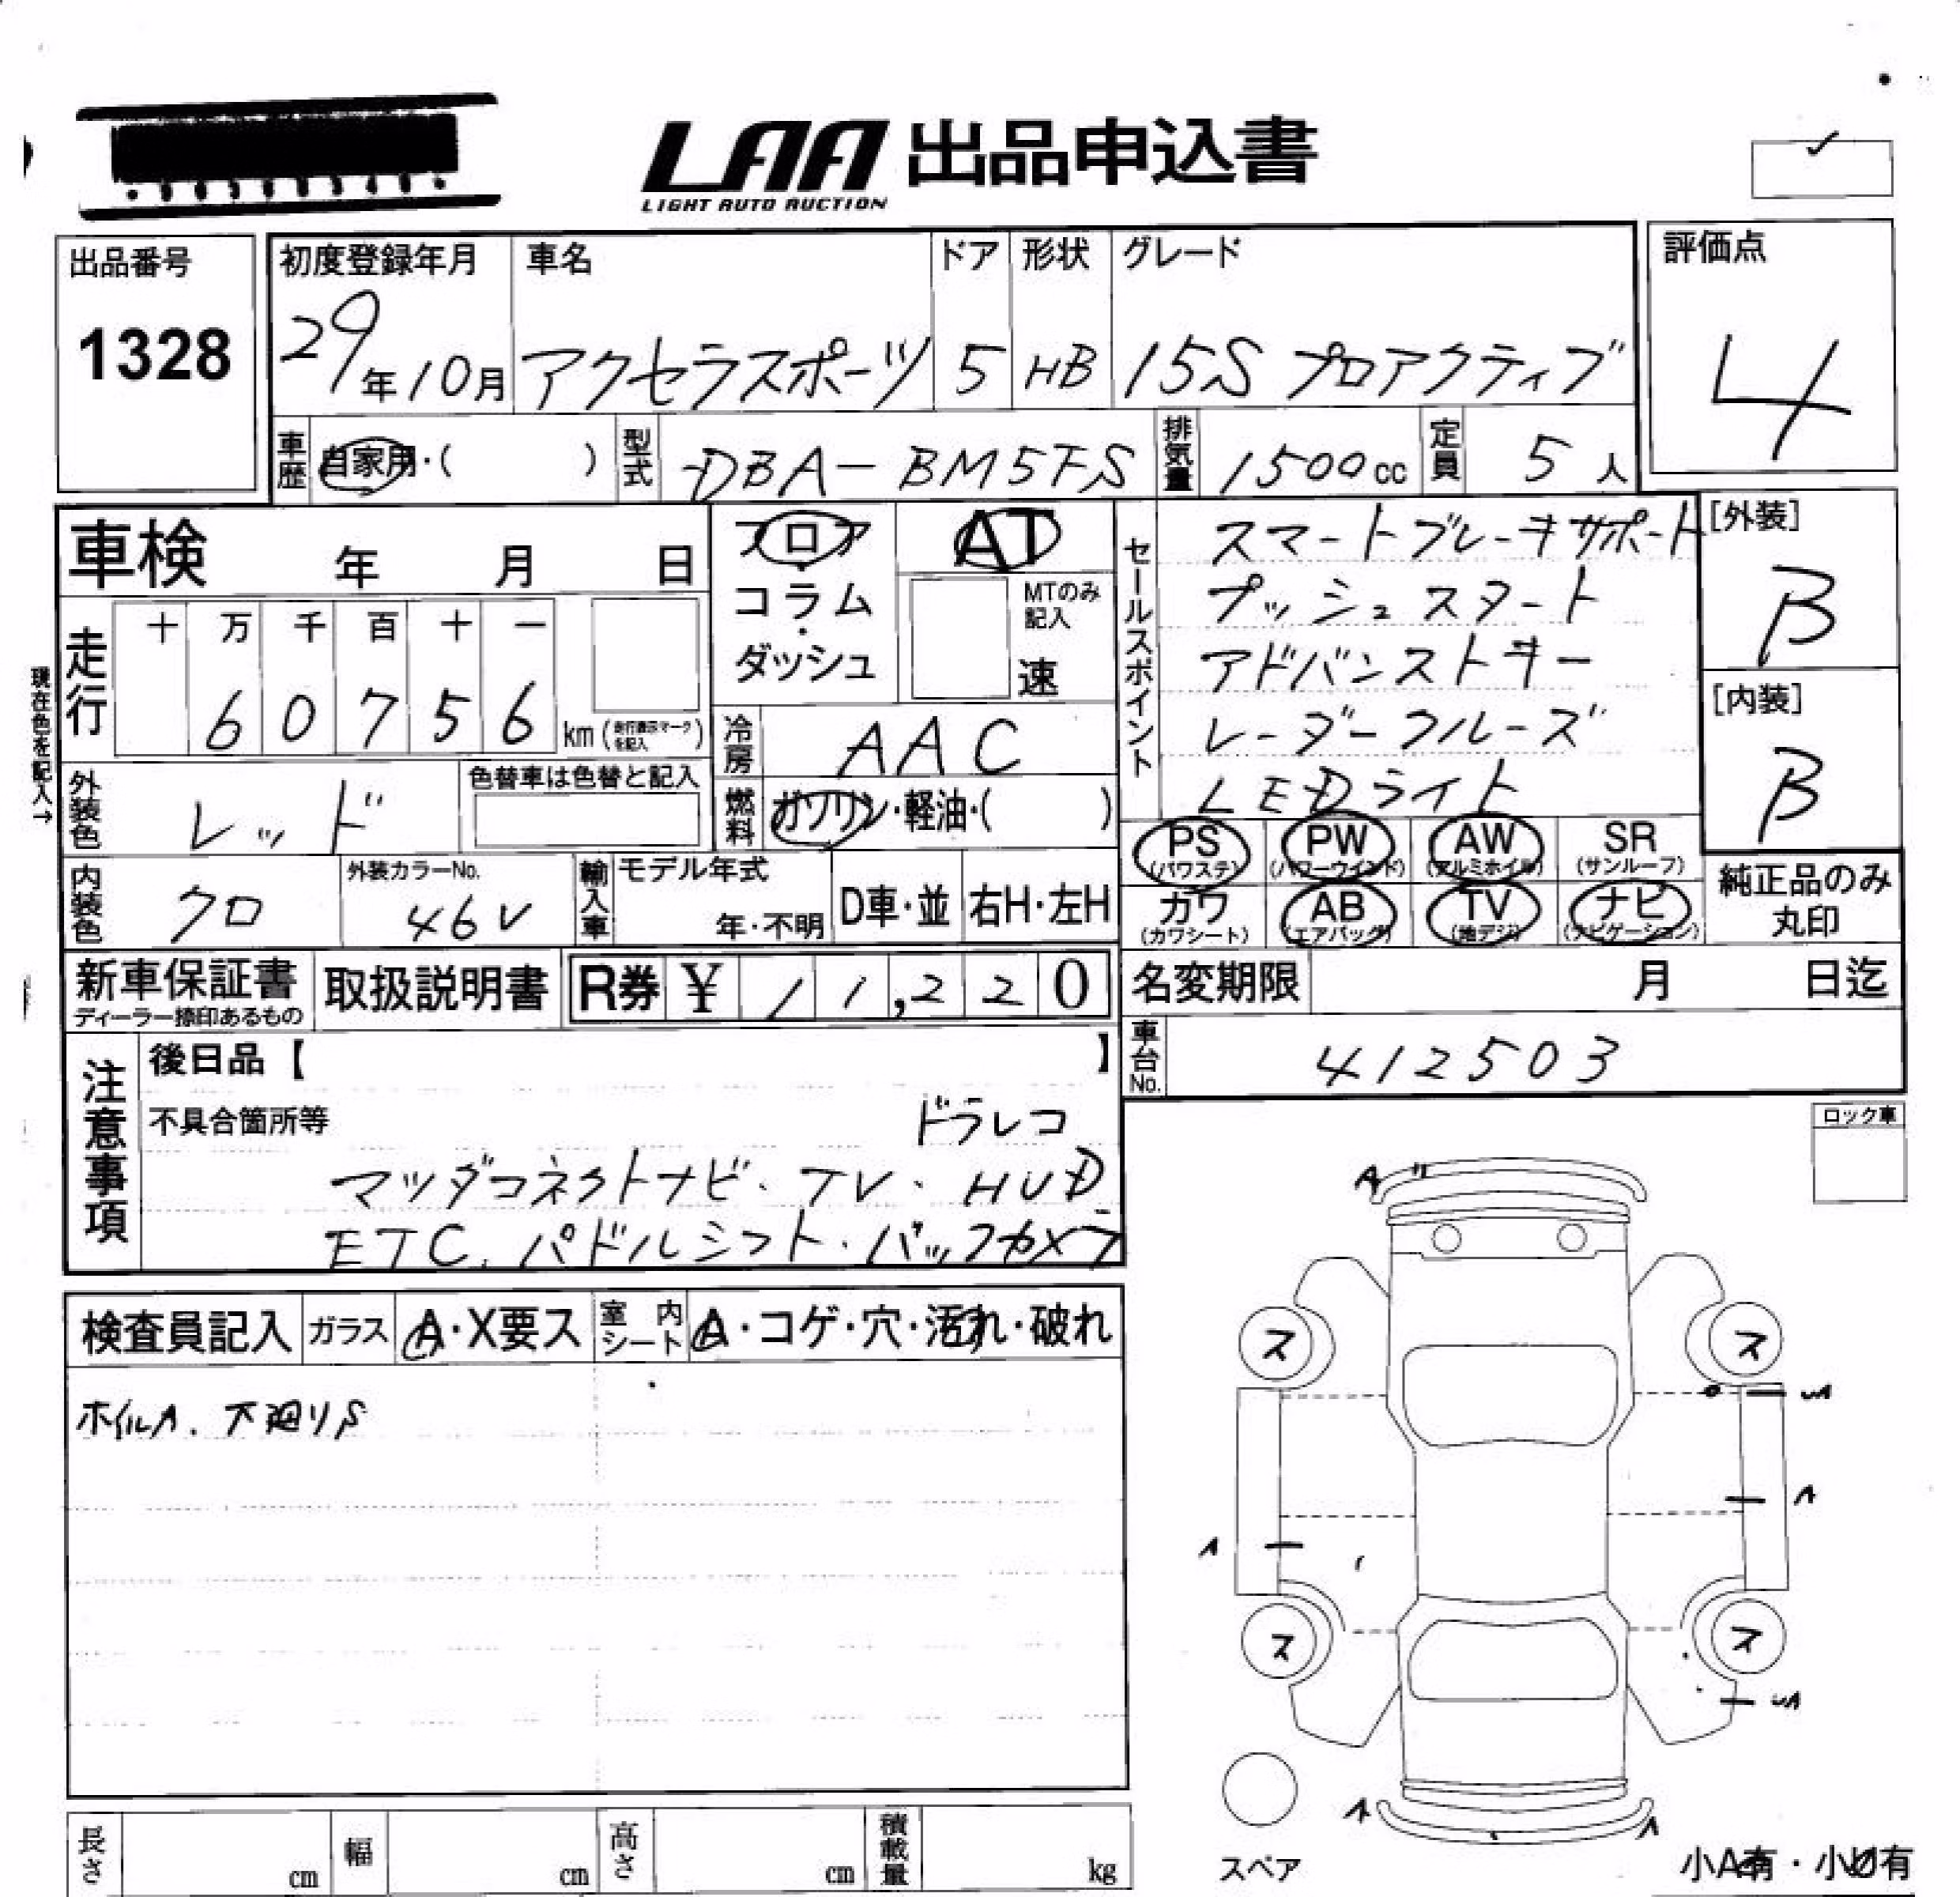 LAA 出品申込書
LIGHT AUTO AUCTION
出品番号
1328
初度登録年月
29年10月
車名
アクセラスポーツ
ドア
5
形状
HB
グレード
15S プロアクティブ
評価点
4
車歴
自家用・( )
型式
DBA-BM5FS
排気量
1500cc
定員
5人
車検 年 月 日
フロア
・
コラム
・
ダッシュ
AT
MTのみ
記入
速
セールスポイント
スマートブレーキサポート
プッシュスタート
アドバンストキー
レーダークルーズ
LEDライト
[外装]
B
[内装]
B
現在色を記入→
走行
十 万 千 百 十 一
6 0 7 5 6
km(走行表示マークを記入)
冷房
AAC
外装色
レッド
色替車は色替と記入
燃料
ガソリン・軽油・( )
PS
(パワステ)
PW
(パワーウインド)
AW
(アルミホイル)
SR
(サンルーフ)
カワ
(カワシート)
AB
(エアバッグ)
TV
(地デジ)
ナビ
(ナビゲーション)
純正品のみ
丸印
内装色
クロ
外装カラーNo.
46V
輸入車
モデル年式
年・不明
D車・並
右H・左H
新車保証書
ディーラー捺印あるもの
取扱説明書
R券 ¥ 11,220
名変期限 月 日迄
車台No.
412503
注意事項
後日品【 】
不具合箇所等
ドラレコ
マツダコネクトナビ・TV・HUD
ETC.パドルシフト・バックカメラ
ロック車
検査員記入
ガラス
A・X要ス
室内シート
A・コゲ・穴・汚れ・破れ
ホイルA. 下廻りS
A
ス
ス
A
A
ス
ス
A
A
スペア
小A有・小U有
長さ cm
幅 cm
高さ cm
積載量 kg